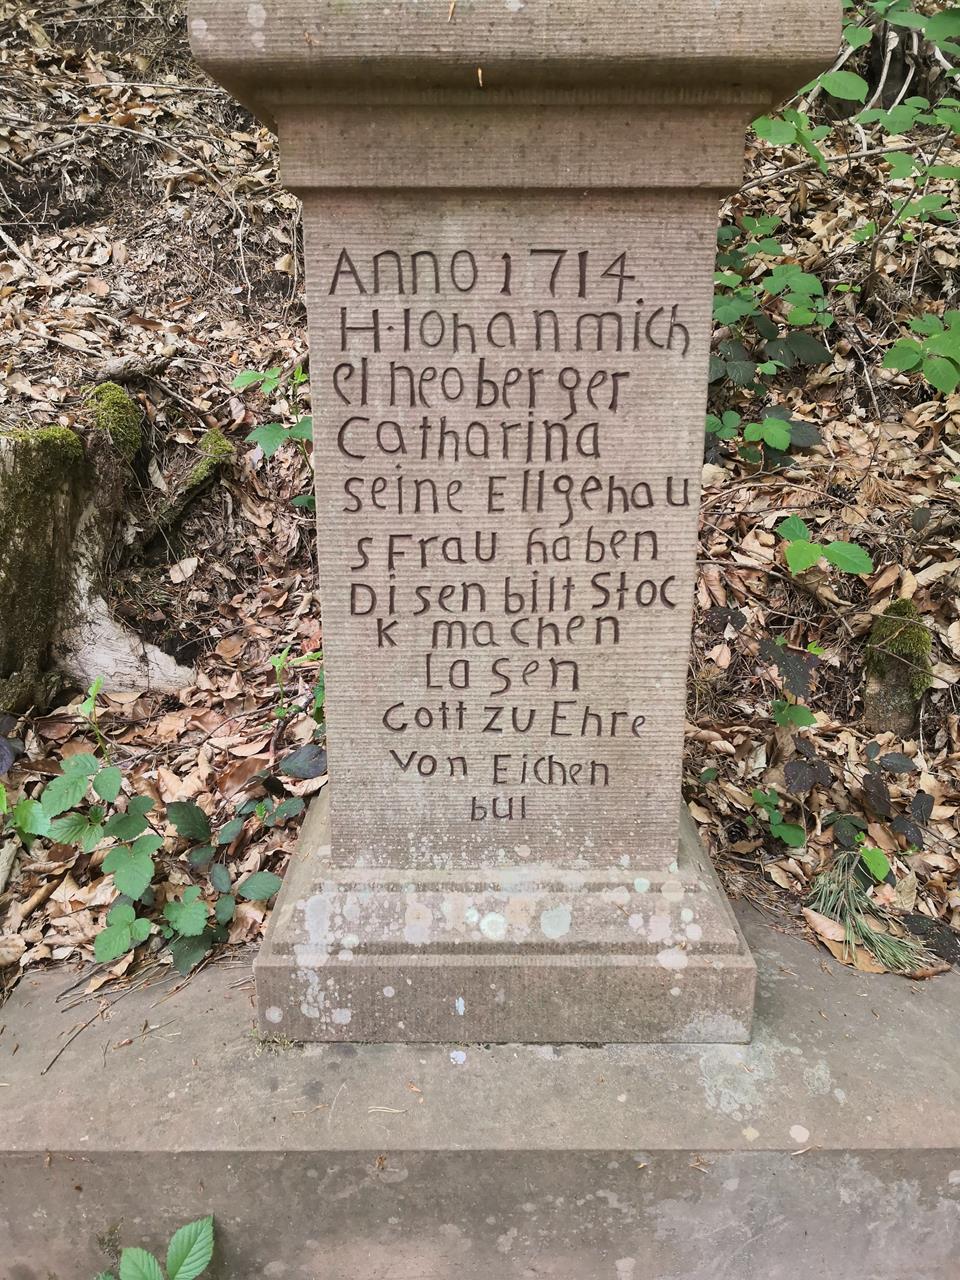 Anno 1714.
H·Iohanmich
el neoberger
Catharina
seine Ellgehau
sFrau haben
Disen bilt Stoc
k machen
Lasen
Gott zu Ehre
von Eichen
bul